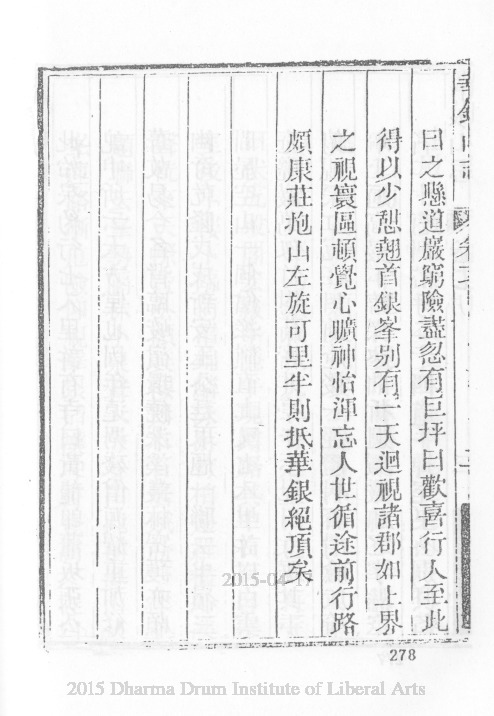 曰之懸道巖窮險盡忽有巨坪曰歡喜行人至此
得以少憇翹首銀峯别有一天迴視諸郡如上界
之視寰區頓覺心曠神怡渾忘人世循途前行路
頗康莊抱山左旋可里半則抵華銀絕頂矣
2015-04-17
278
2015 Dharma Drum Institute of Liberal Arts